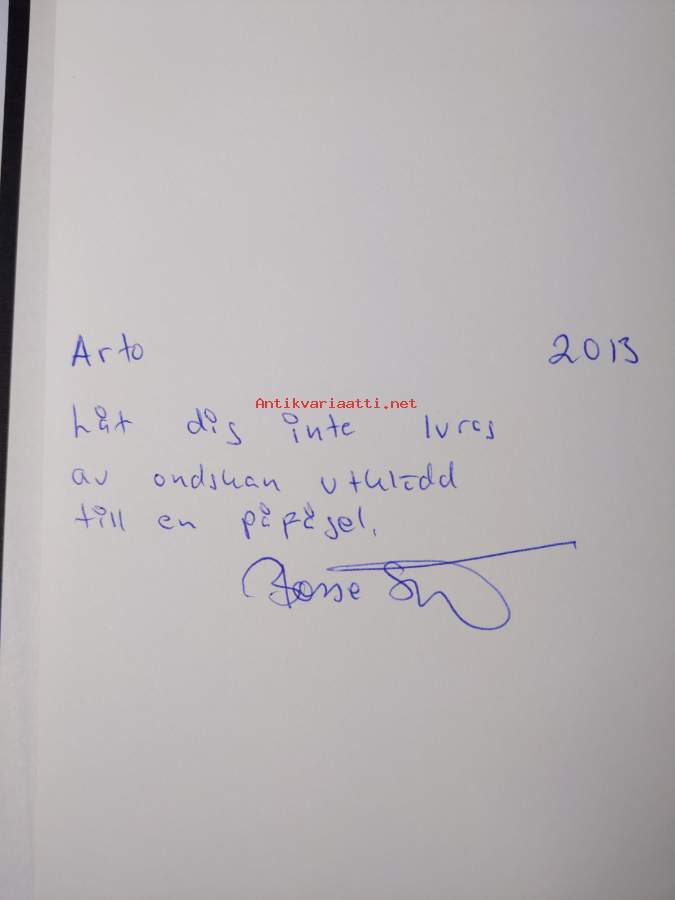 Arto 2013
Antikvariaatti.net
Låt dig inte luras
av ondskan utklädd
till en påfågel.
Bosse